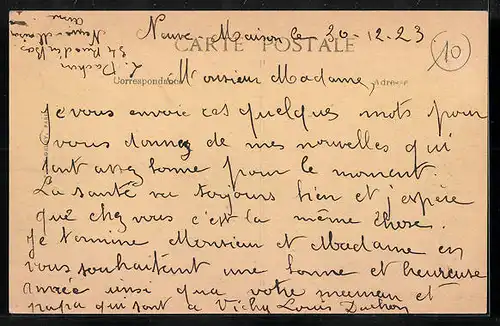 Neuve-Maison le 30-12-23
CARTE POSTALE
10
L. Dachon
34 Rue d'en Bas
Neuve-Maison
Aisne
Correspondance
Adresse
Monsieur Madame,
Je vous envoie ces quelques mots pour
vous donnez de mes nouvelles qui
sont assez bonne pour le moment.
La santé va toujours bien et j'espère
que chez vous c'est la même chose.
Je termine Monsieur et Madame en
vous souhaitant une bonne et heureuse
année insi que votre maman et
papa qui sont à Vichy Louis Dachon